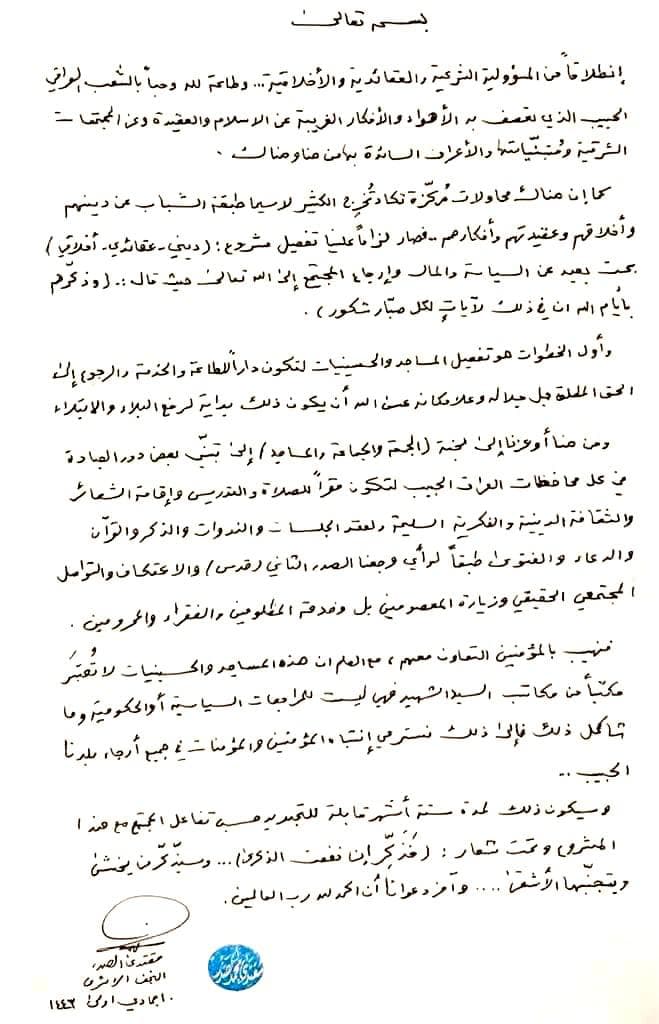 بسمه تعالى
إنطلاقاً من المسؤولية الشرعية والعقائدية والأخلاقية... وطاعة لله وحباً بالشعب العراقي
الحبيب الذي تعصف به الأهواء والأفكار الغريبة عن الاسلام والعقيدة وعن المجتمعات
الشرقية ومُتبنّياتها والأعراف السائدة بها من هنا وهناك .
كما إن هناك محاولات مُركّزة تكاد تُخرج الكثير لاسيما طبقة الشباب عن دينهم
وأخلاقهم وعقيدتهم وأفكارهم .. فصار لزاماً علينا تفعيل مشروع : (ديني - عقائدي - أخلاقي)
بحت بعيد عن السياسة والمال وإرجاع المجتمع إلى الله تعالى حيث قال : .. (وذكّرهم
بأيّام الله ان في ذلك لآياتٍ لكل صبّار شكور) .
وأول الخطوات هو تفعيل المساجد والحسينيات لتكون داراً للطاعة والخدمة والرجوع إلى
الحق المطلق جل جلاله وعلا مكانه عسى الله أن يكون ذلك بداية لرفع البلاء والابتلاء
ومن هنا أوعزنا إلى لجنة (الجمعة والجماعة والمساجد) إلى تبنّي بعض دور العبادة
في كل محافظات العراق الحبيب لتكون مقراً للصلاة والتدريس وإقامة الشعائر
والثقافة الدينية والفكرية السليمة ولعقد الجلسات والندوات والذكر والقرآن
والدعاء والفتوى طبقاً لرأي مرجعنا الصدر الثاني (قدس) والاعتكاف والتواصل
المجتمعي الحقيقي وزيارة المعصومين بل وخدمة المظلومين والفقراء والمحرومين .
فنهيب بالمؤمنين التعاون معهم ، مع العلم ان هذه المساجد والحسينيات لا تُعتبَر
مكتباً من مكاتب السيد الشهيد فهي ليست للمراجعات السياسية أو الحكومية وما
شاكل ذلك فإلى ذلك نسترعي إنتباه المؤمنين والمؤمنات في جميع أرجاء بلدنا
الحبيب ..
وسيكون ذلك لمدة ستة أشهر قابلة للتجديد حسب تفاعل المجتمع مع هذا
المشروع وتحت شعار : (فَذَكِّر إن نفعت الذكرى) ... وسيذّكّر من يخشى
ويتجنّبها الأشقى .... وآخر دعوانا أن الحمد لله رب العالمين .
مقتدى الصدر
النجف الاشرف
١٠ جمادي اولى ١٤٤٣
مقتدى محمد الصدر